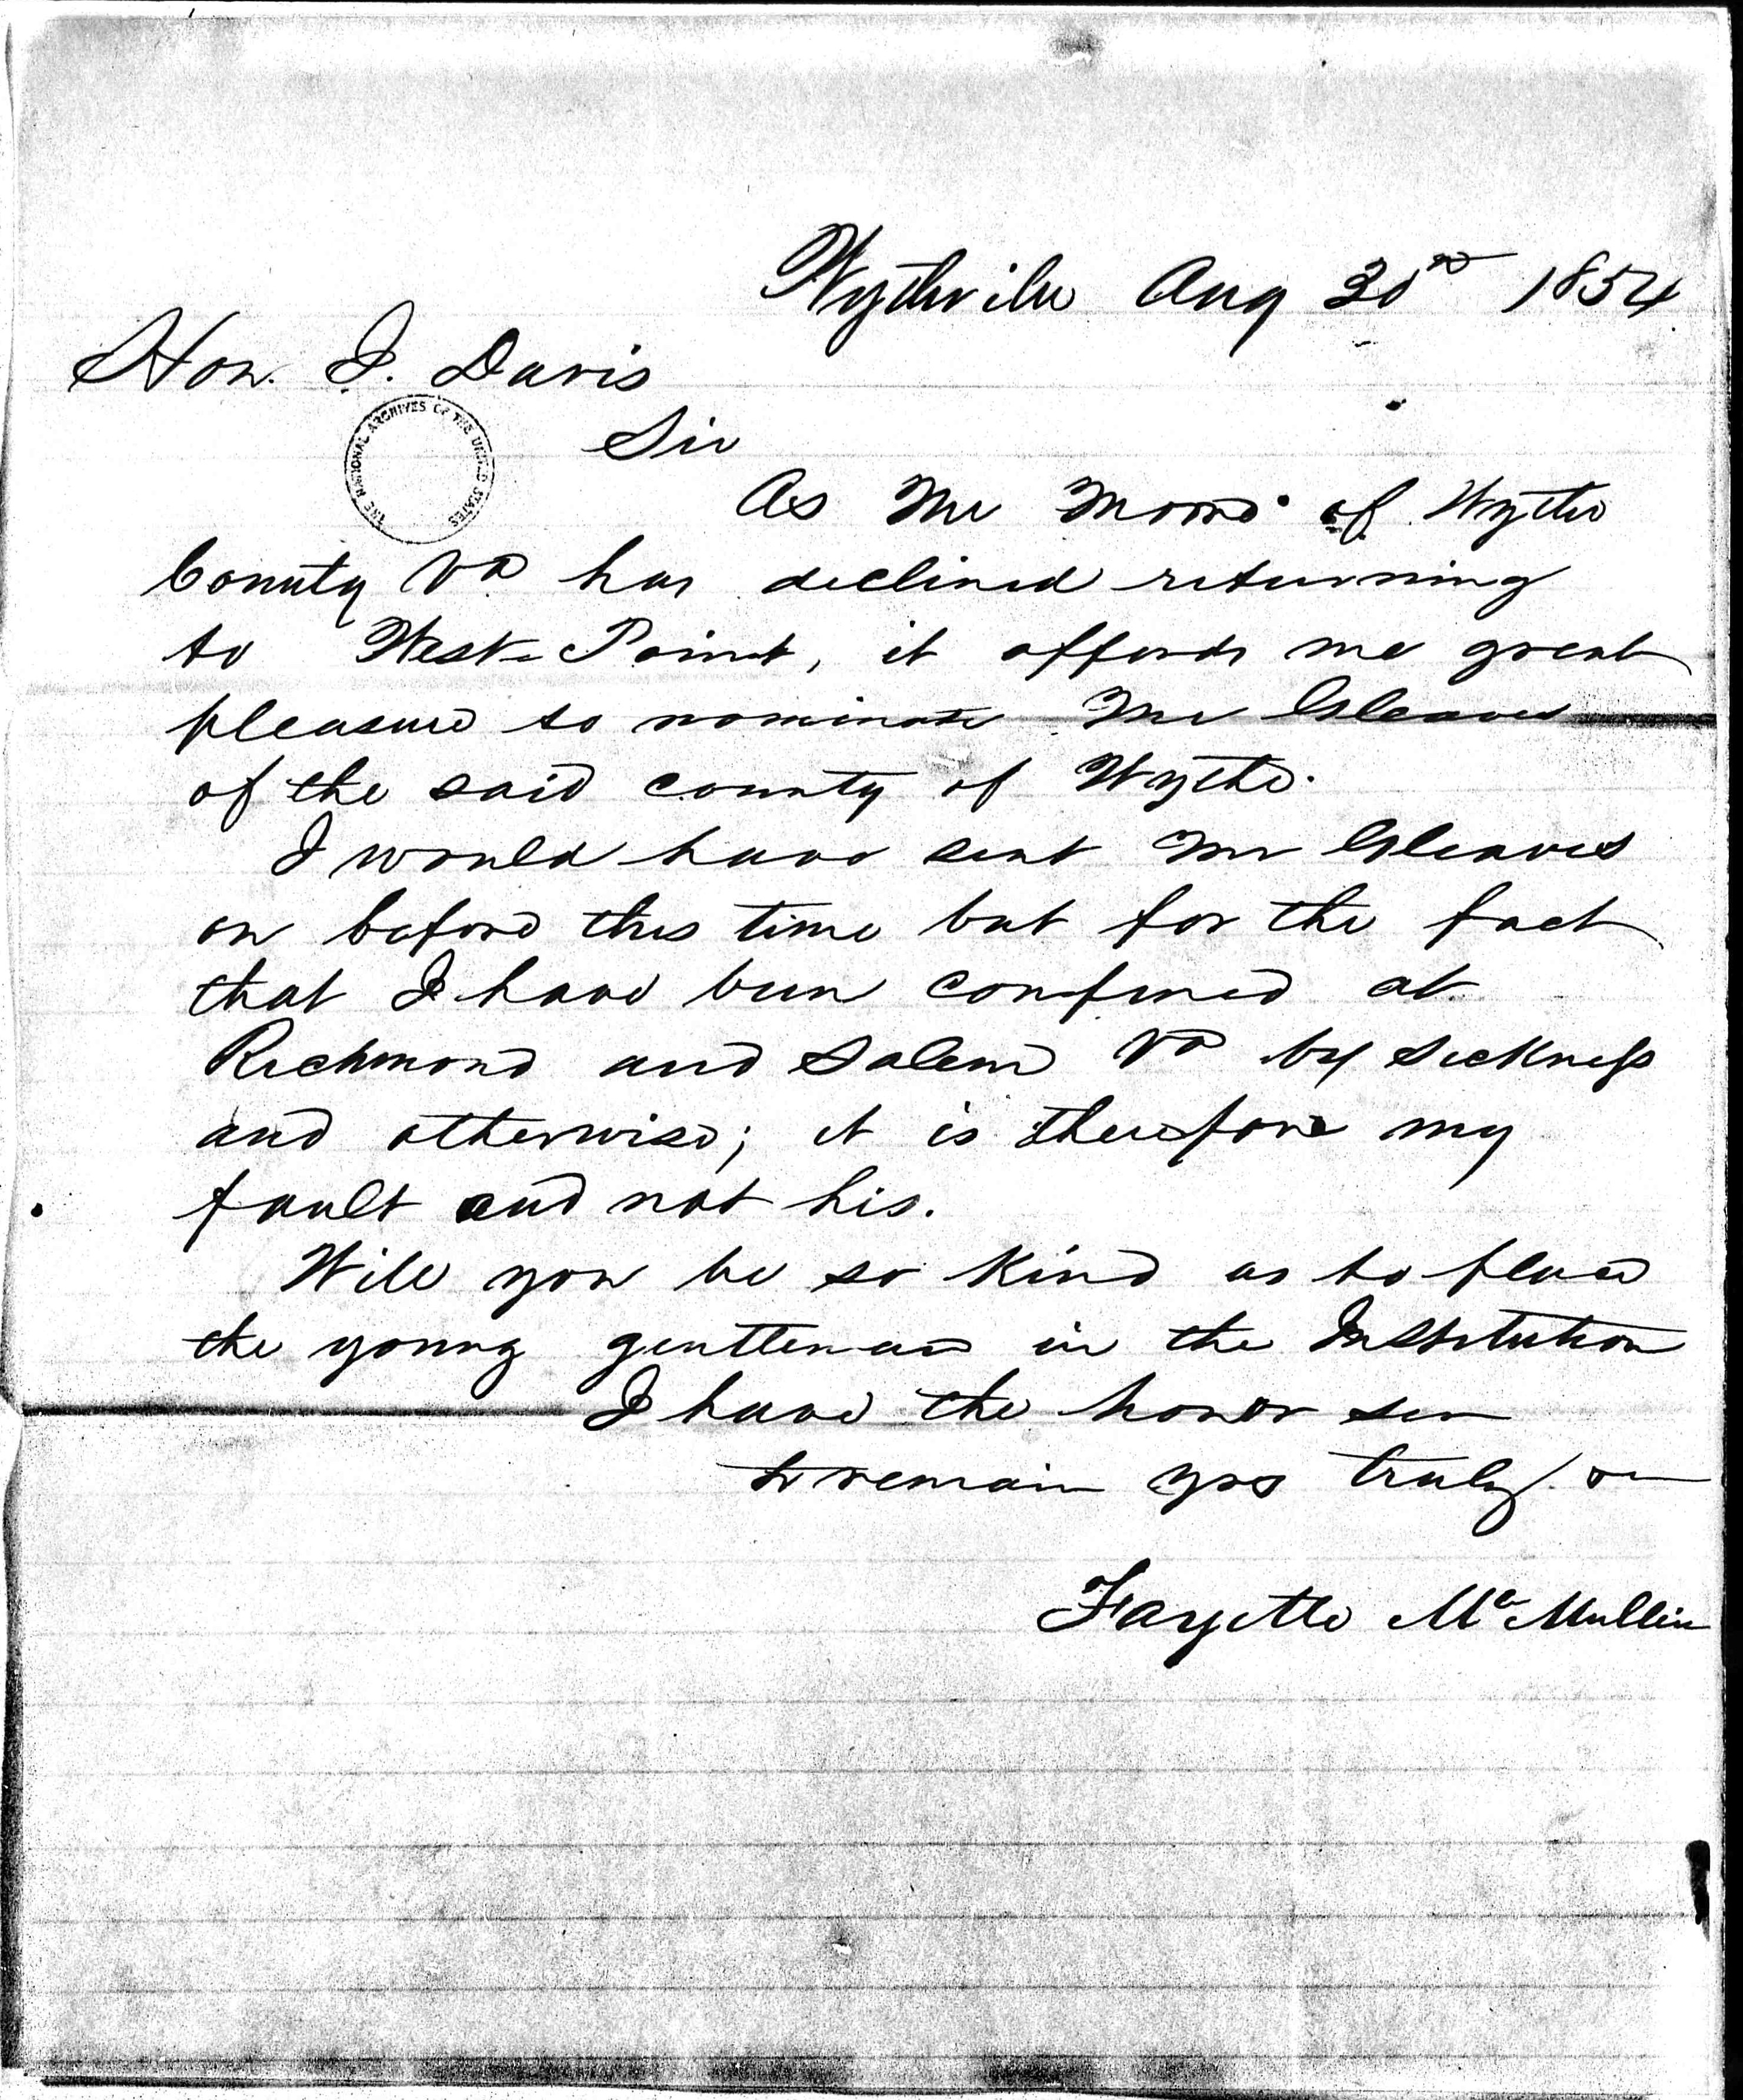 Wytheville Aug 30th 1854
Hon. J. Davis
THE NATIONAL ARCHIVES OF THE UNITED STATES
Sir
As Mr of Wythe
County Va has declined returning
to West Point, it affords me great
pleasure to nominate Mr Gleaves
of the said county of Wythe.
I would have sent Mr Gleaves
on before this time but for the fact
that I have been confined at
Richmond and Salem Va by sickness
and otherwise; it is therefore my
fault and not his.
Will you be so kind as to place
the young gentleman in the Institution
I have the honor sir
to remain yrs truly
Fayette McMullin